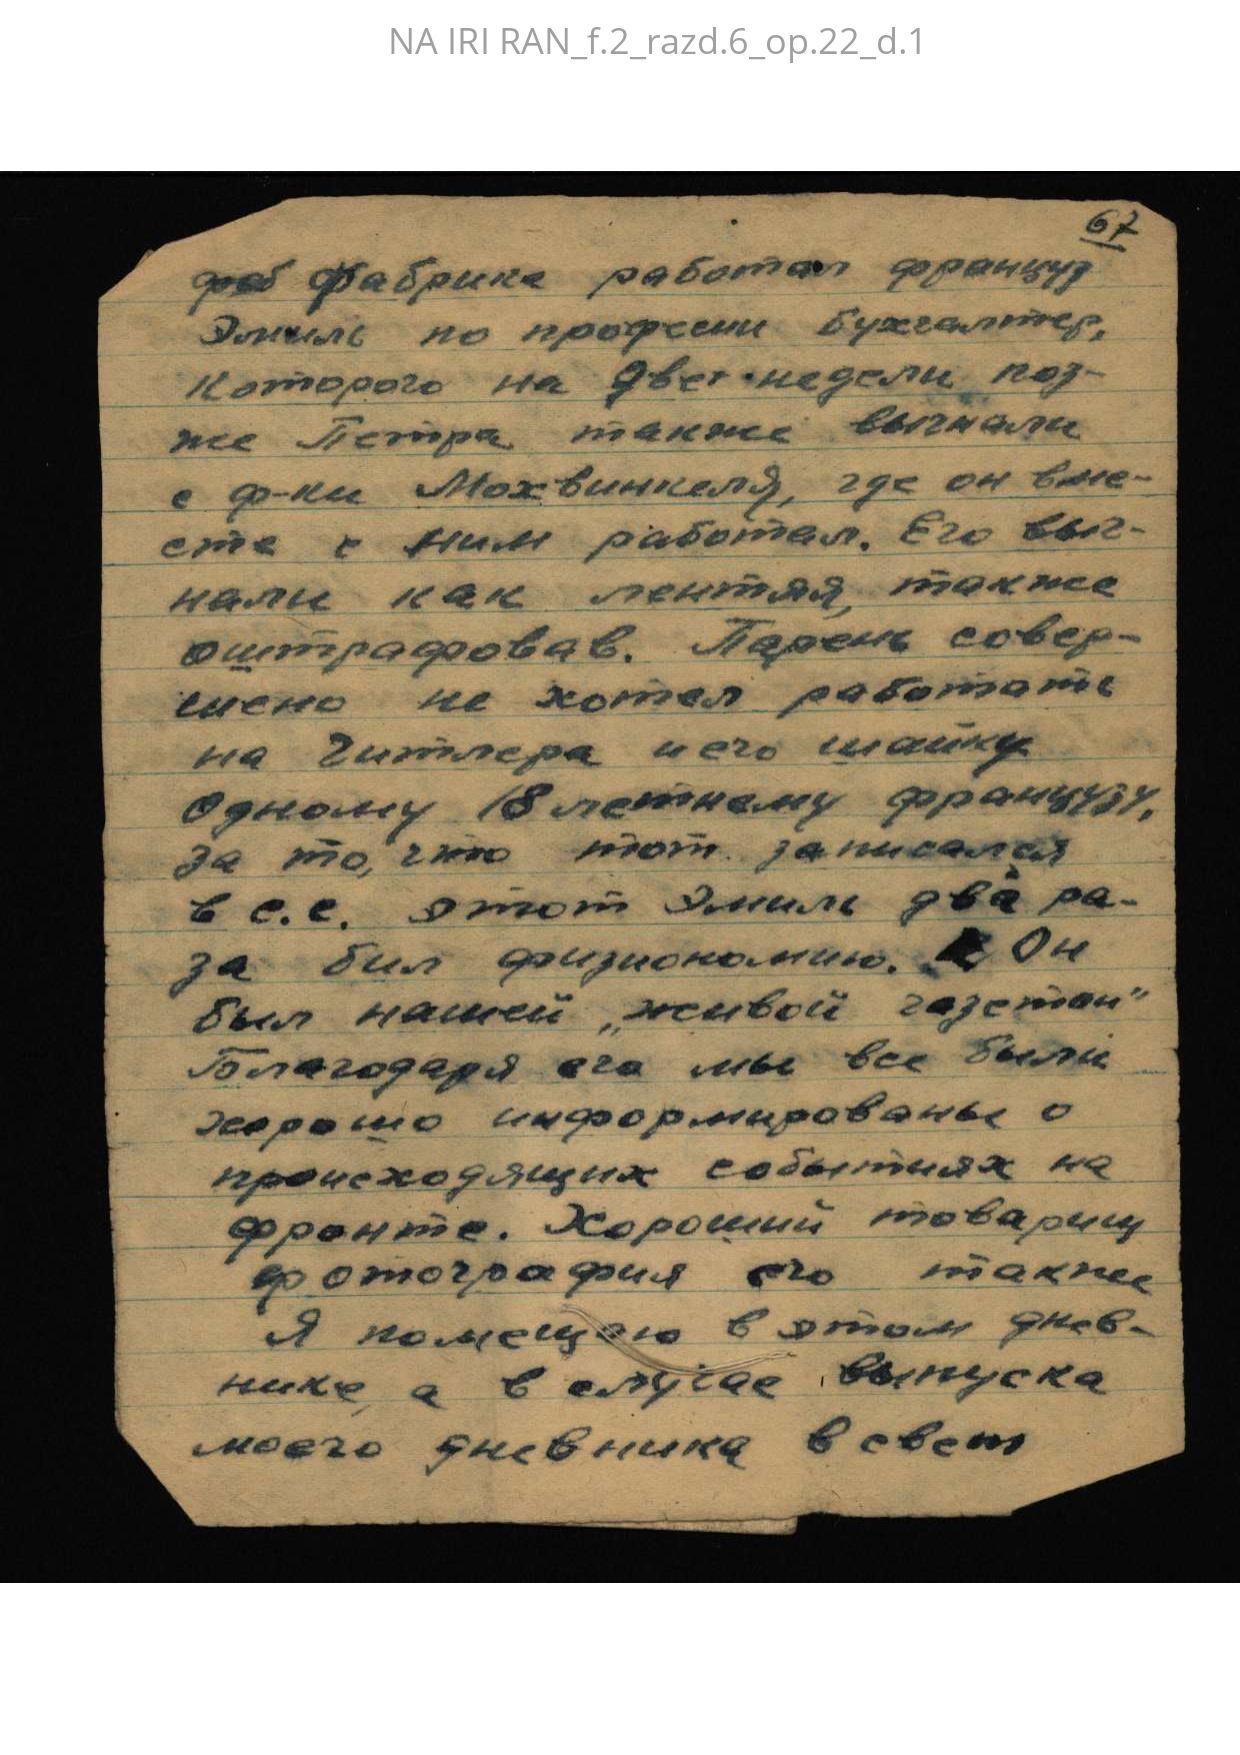 NA IRI RAN_f.2_razd.6_op.22_d.1
67
фаб Фабрика работал француз
Эмиль по професии бухгалтер,
которого на двет недели поз-
же Петра также выгнали
с ф-ки Мохвинкеля, где он вме-
сте с ним работал. Его выг-
нали как лентяя, также
оштрафовав. Парень совер-
шено не хотел работать
на Гитлера и его шайку
Одному 18 летнему французу,
за то, что тот записался
в с.с. этот Эмиль два ра-
за бил физиономию. Он
был нашей „живой газетой"
Благодаря его мы все были
хорошо информированы о
происходящих событиях на
фронте. Хороший товарищ
фотография его также
Я помещаю в этом днев-
нике, а в случае выпуска
моего дневника в свет